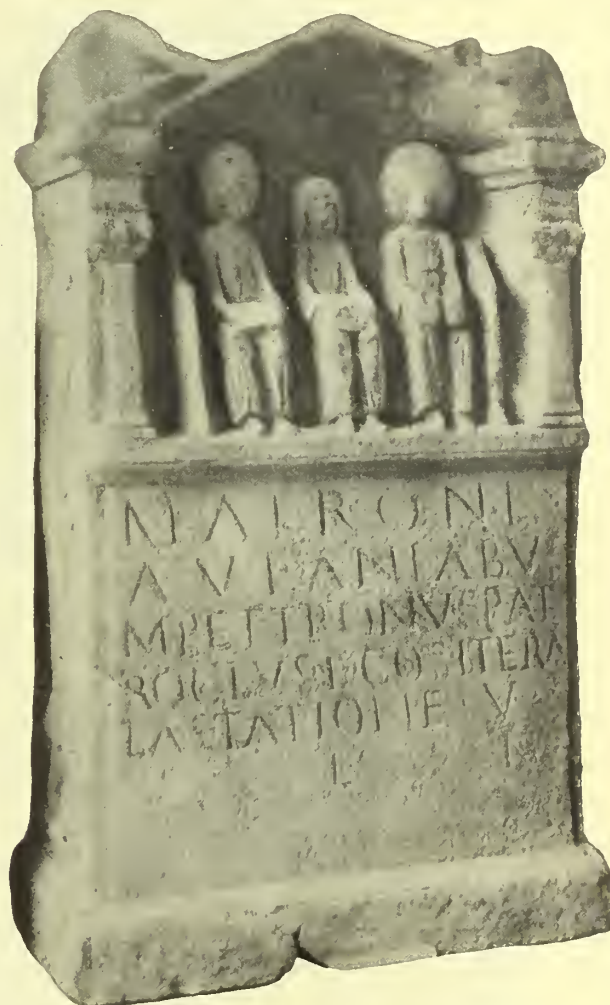 MATRONI
AVFANIABV
M PETTRONIVS PAT
ROCLVS BF COS ITERA
TA STATIONE V
L